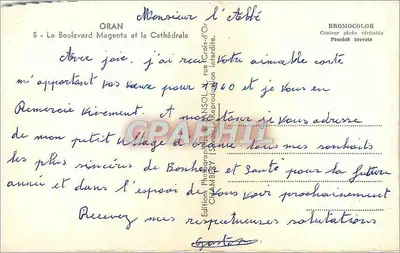 Monsieur l'Abbé
ORAN
5 - Le Boulevard Magenta et la Cathédrale
BROMOCOLOR
Couleur photo véritable
Procédé breveté
Avec joie, j'ai reçu votre aimable carte
m'apportant vos vœux pour 1960 et je vous en
Remercie vivement. A mon tour je vous adresse
de mon petit village d'Oranie tous mes souhaits
les plus sincères de Bonheur et Santé pour la future
année et dans l'espoir de vous voir prochainement
Recevez mes respectueuses salutations
Gaston
CARTAPHILIE